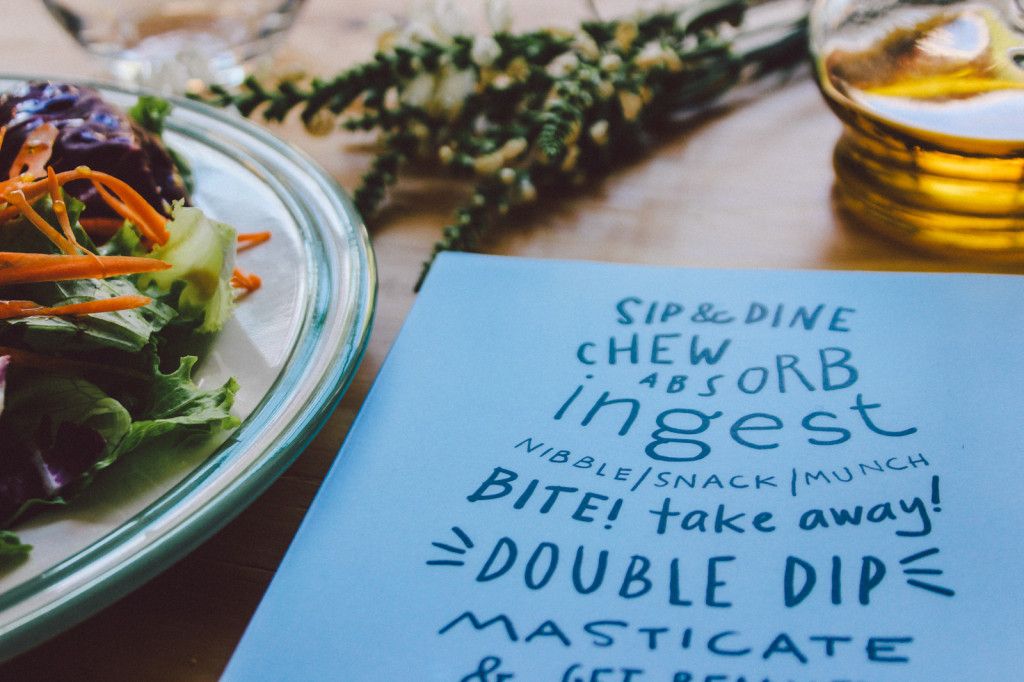 SIP & DINE
CHEW
ABSORB
ingest
NIBBLE/SNACK/MUNCH
BITE! take away!
DOUBLE DIP
MASTICATE
& GET